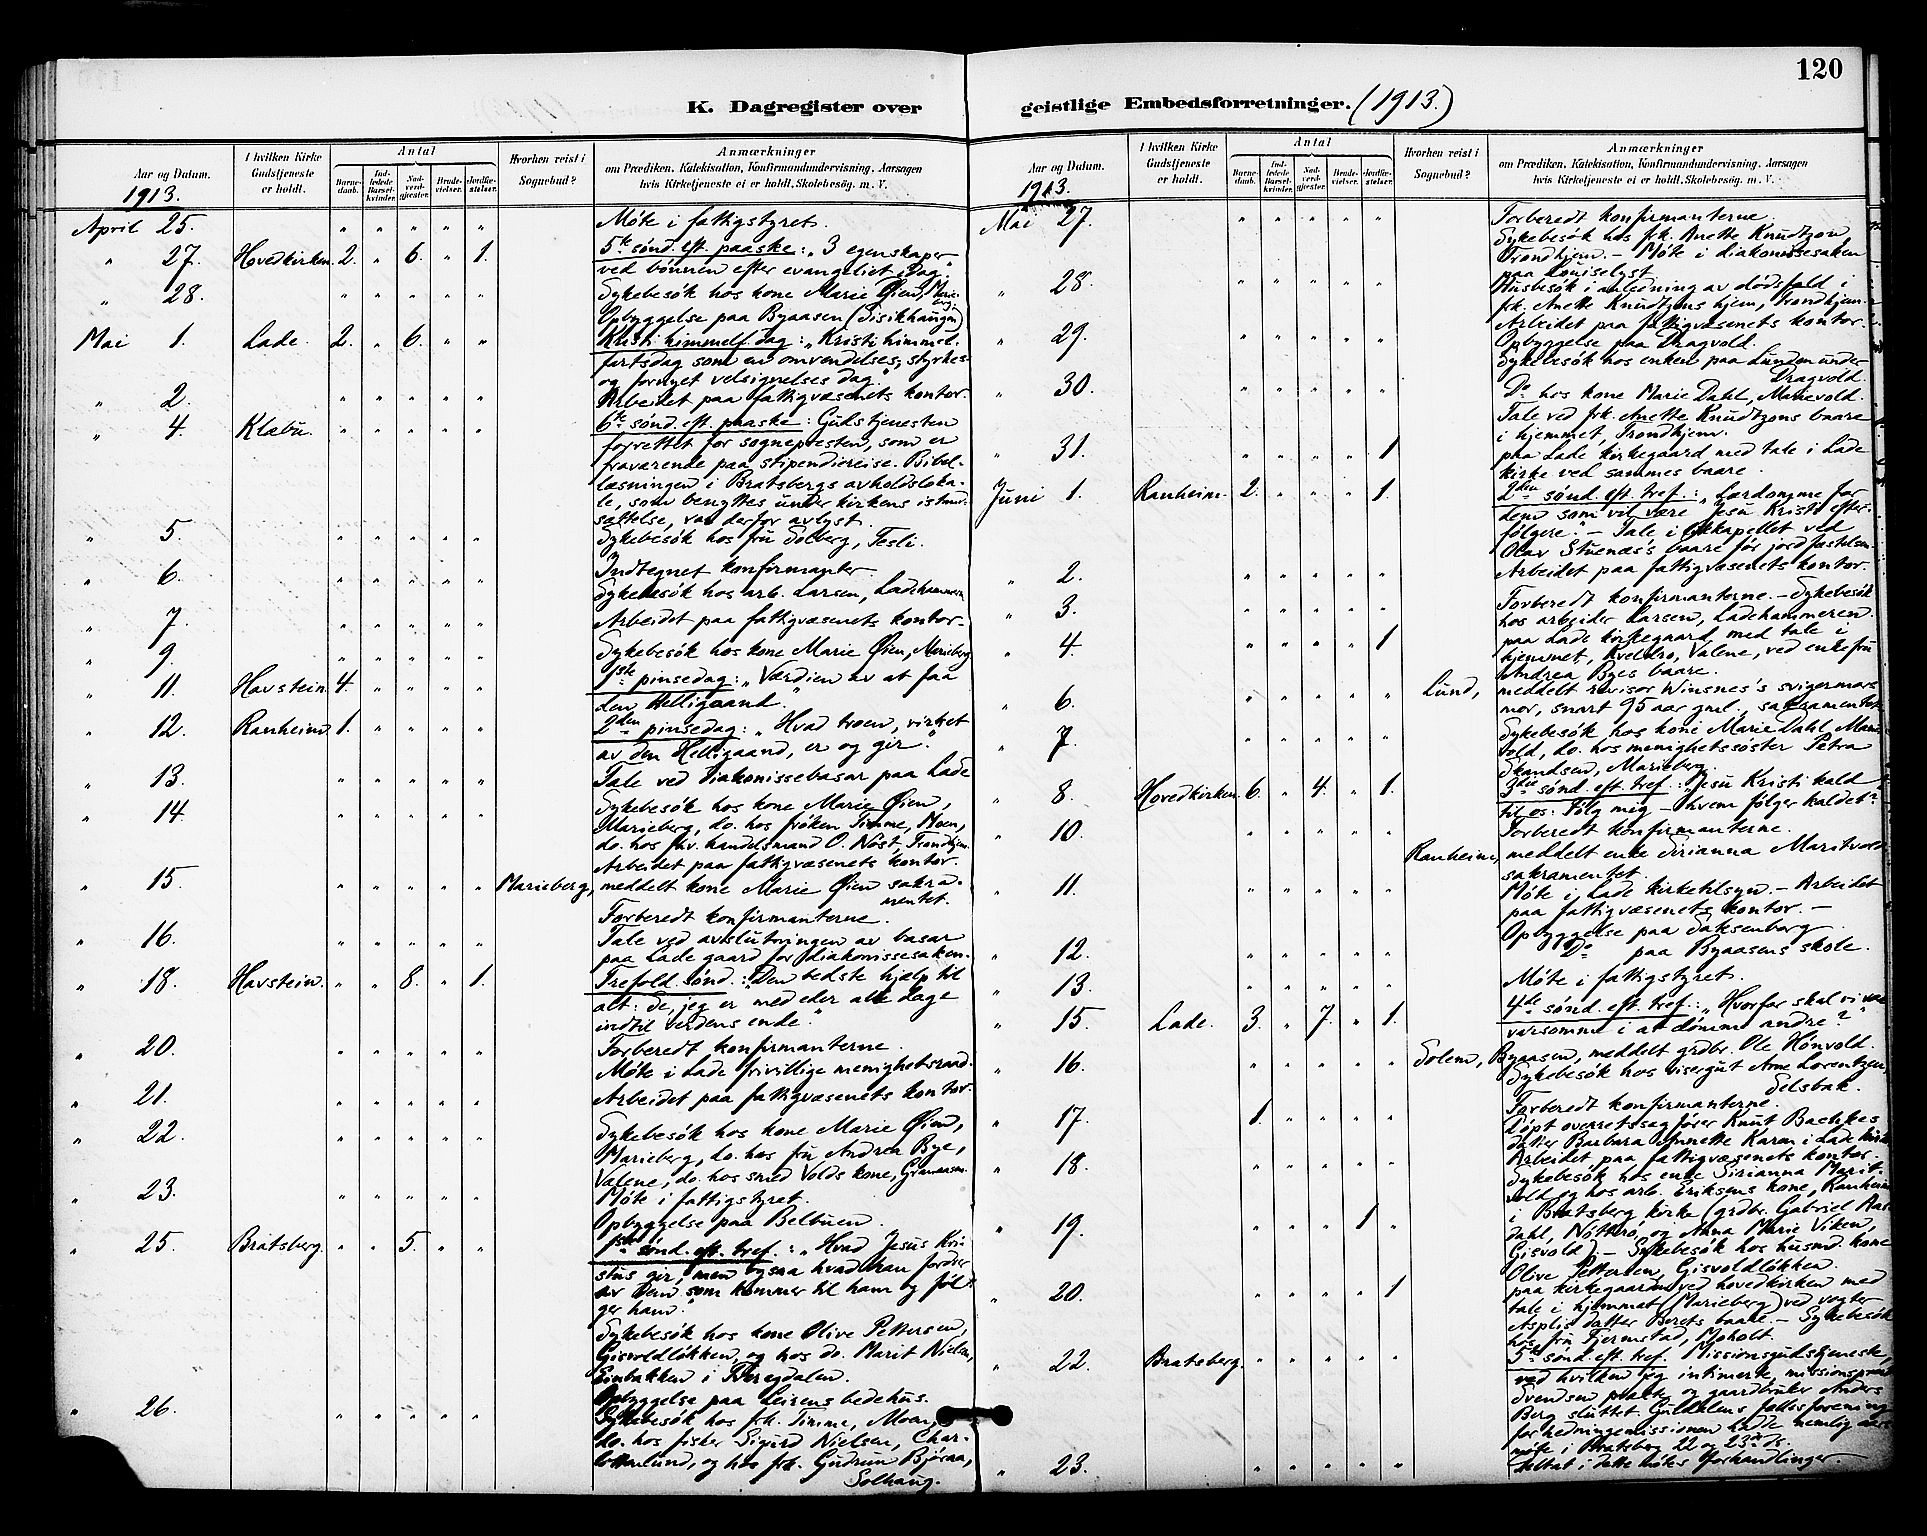 120
K. Dagregister over geistlige Embedsforretninger. (1913.)
Aar og Datum. I hvilken Kirke Gudstjeneste er holdt. Antal Barnedaab. Indledede Barselkvinder. Nadverdgjester. Brudevielser. Jordfæstelser. Hvorhen reist i Sognebud? Anmærkninger om Prædiken, Katekisation, Konfirmandundervisning, Aarsagen hvis Kirketjeneste ei er holdt, Skolebesøg. m. V.
1913.
April 25. " " " " " Möte i fattigstyret.
" 27. Hovedkirken. 2. " 6. " 1. 5te sönd. eft. paaske: "3 egenskaper
ved bönnen efter evangeliet idag."
" 28. " " " " " Sykebesök hos kone Marie Öien, Marieberg.
Opbyggelse paa Byaasen (Tisikhaugen)
Mai 1. Lade. 2. " 6. " " Kristi himmelf. dag: "Kristi himmel-
fartsdag som en omvendelses, styrkes-
og fornyet velsignelses dag."
" 2. " " " " " Arbeidet paa fattigvæsenets kontor.
" 4. Klæbu. " " " " " 6te sönd. eft. paaske: Gudstjenesten
forrettet for sognepresten, som er
fraværende paa stipendiereise. Bibel-
læsningen i Bratsbergs avholdsloka-
le, som benyttes under kirkens istand-
sættelse, var derfor avlyst.
" 5. " " " " " Sykebesök hos fru Solberg, Tesli.
" 6. " " " " " Indtegnet konfirmanter.
Sykebesök hos arb. Larsen, Ladehammeren
" 7. " " " " " Arbeidet paa fattigvæsenets kontor.
" 9. " " " " " Sykebesök hos kone Marie Öien, Marieberg
" 11. Havstein. 4. " " " " 1ste pinsedag: "Værdien av at faa
den Helligaand."
" 12. Ranheim. 1. " " " " 2den pinsedag: "Hvad troen, virket
av den Helligaand, er og gir."
" 13. " " " " " Tale ved diakonissebasar paa Lade
" 14. " " " " " Sykebesök hos kone Marie Öien,
Marieberg, do. hos fröken Timme, Moen,
do. hos fhv. handelsmand O. Nöst, Trondhjem.
Arbeidet paa fattigvæsenets kontor.
" 15. " " " " " Marieberg, meddelt kone Marie Öien sakra-
mentet.
Forberedt konfirmanterne.
" 16. " " " " " Tale ved avslutningen av basar
paa Lade gaard for diakonissesaken.
" 18. Havstein. " " 8. " 1. Trefold. sönd.: "Den bedste hjælp til
alt: de, jeg er med eder alle dage
indtil verdens ende."
" 20. " " " " " Forberedt konfirmanterne.
Möte i Lade frivillige menighetsraad.
" 21. " " " " " Arbeidet paa fattigvæsenets kontor.
" 22. " " " " " Sykebesök hos kone Marie Öien,
Marieberg, do. hos fru Andrea Bye,
Valene, do. hos smed Volds kone,
" 23. " " " " " Möte i fattigstyret.
Opbyggelse paa Belbuen.
" 25. Bratsberg. " " 5. " " 1ste sönd. eft. tref.: "Hvad Jesus Kri-
stus gir, men ogsaa hvad han fordrer
av dem som kommer til ham og föl-
ger ham."
Sykebesök hos kone Olive Pettersen,
Gisvoldlökken, og hos do. Marit Nielsen,
Einbakken i
Opbyggelse paa Leirens bedehus.
" 26. " " " " " Sykebesök hos frk. Timme, Moen,
do. hos fisker Sigurd Nielsen, Char-
lottenlund, og hos frk. Gudrun Björaa,
Solhaug.
Aar og Datum. I hvilken Kirke Gudstjeneste er holdt. Antal Barnedaab. Indledede Barselkvinder. Nadverdgjester. Brudevielser. Jordfæstelser. Hvorhen reist i Sognebud? Anmærkninger om Prædiken, Katekisation, Konfirmandundervisning, Aarsagen hvis Kirketjeneste ei er holdt, Skolebesøg. m. V.
1913.
Mai 27. " " " " " Forberedt konfirmanterne.
Sykebesök hos frk. Anette Knudtzon
Trondhjem. - Möte i diakonissesaken
paa Louiselyst
" 28. " " " " " Husbesök i anledning av dödsfald i
frk. Anette Knudtzons hjem, Trondhjem.
Arbeidet paa fattigvæsenets kontor.
" 29. " " " " " Opbyggelse paa Dragvold.
Sykebesök hos enken paa Lundem under
Dragvold.
" 30. " " " " " Do hos kone Marie Dahl, Marievold.
Tale ved frk. Anette Knudtzons baare
i hjemmet, Trondhjem.
" 31. " " " " 1 paa Lade kirkegaard med tale i Lade
kirke ved sammes baare.
Juni 1. Ranheim. 2. " " " 1. 2den sönd. eft. tref.: "Lærdomme for
dem som vil være Jesu Kristi efter-
fölgere." - Tale i likkapellet ved
Olav Stuenæs's baare för jordfæstelsen.
" 2. " " " " " Arbeidet paa fattigvæsenets kontor.
" 3. " " " " " Forberedt konfirmanterne. - Sykebesök
hos arbeider Larsen, Ladehammeren.
" 4. " " " " 1 paa Lade kirkegaard, med tale i
hjemmet, Kveldro, Valene, ved enkefru
Andrea Byes baare.
" 6. " " " " " Lund, meddelt revisor Winsnes's svigermors
mor, snart 95 aar gml., sakramentet
" 7. " " " " " Sykebesök hos kone Marie Dahl Marie-
vold, do. hos menighetssöster Petra
Skandsen, Marieberg.
" 8. Hovedkirken 6. " 4. " 1. 3die sönd. eft. tref.: "Jesu Kristi kald
til os: Fölg mig - hvem fölger kaldet?"
" 10. " " " " " Forberedt konfirmanterne.
Ranheim, meddelt enke Sirianna Maritvold
sakramentet.
" 11. " " " " " Möte i Lade kirketilsyn. - Arbeidet
paa fattigvæsenets kontor. -
Opbyggelse paa Saksenborg.
" 12. " " " " " Do paa Byaasens skole.
" 13. " " " " " Möte i fattigstyret.
" 15. Lade. 3. " 7. " 1. 4de sönd. eft. tref.: "Hvorfor skal vi være
varsomme i at dömme andre?"
" 16. " " " " " Solem, Byaasen, meddelt grdbr. Ole Hönvold.
Sykebesök hos visergut Arne Lorentzen,
Selsbak.
" 17. 1. " " " " Forberedt konfirmanterne.
Döpt overretssagförer Knut Baehkes
datter Barbara Annette Karen i Lade kirke
" 18. " " " " " Arbeidet paa fattigvæsenets kontor.
Sykebesök hos enke Sirianna Marit-
vold og hos arb. Eriksens kone, Ranheim
" 19. " " " 1 " i Bratsberg kirke (grdbr. Gabriel Aas-
dahl, Nötterö, og Anna Marie Viken,
Gisvold). - Sykebesök hos husmd. kone
Olive Pettersen, Gisvoldlökken.
" 20. " " " " 1 paa kirkegaarden ved hovedkirken med
tale i hjemmet (Marieberg) ved vogter
Asplis datter Berets baare. - Sykebesök
hos fru Fjermstad, Moholt.
" 22. Bratsberg. " " " " " 5te sönd. eft. tref. Missionsgudstjeneste,
ved hvilken jeg intimerte, missionsprest
Svendsen prækte og gaardbruker Anders
Berg sluttet. Guldalens fællesforening
for hedningemissionen hadde nemlig aars-
möte i Bratsberg 22 og 23de ds.
" 23. " " " " " Deltat i dette mötes forhandlinger.